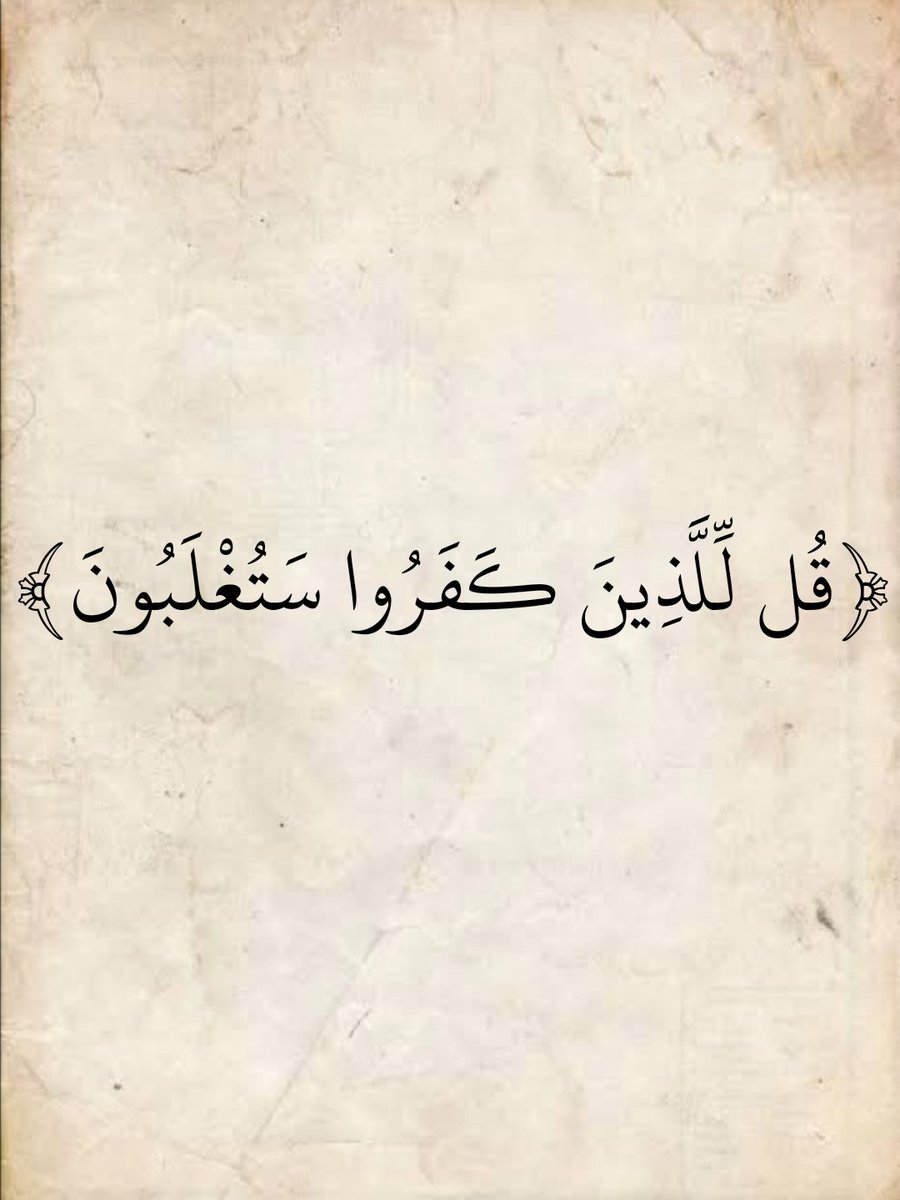 ﴿قُل لِّلَّذِينَ كَفَرُوا سَتُغْلَبُونَ﴾